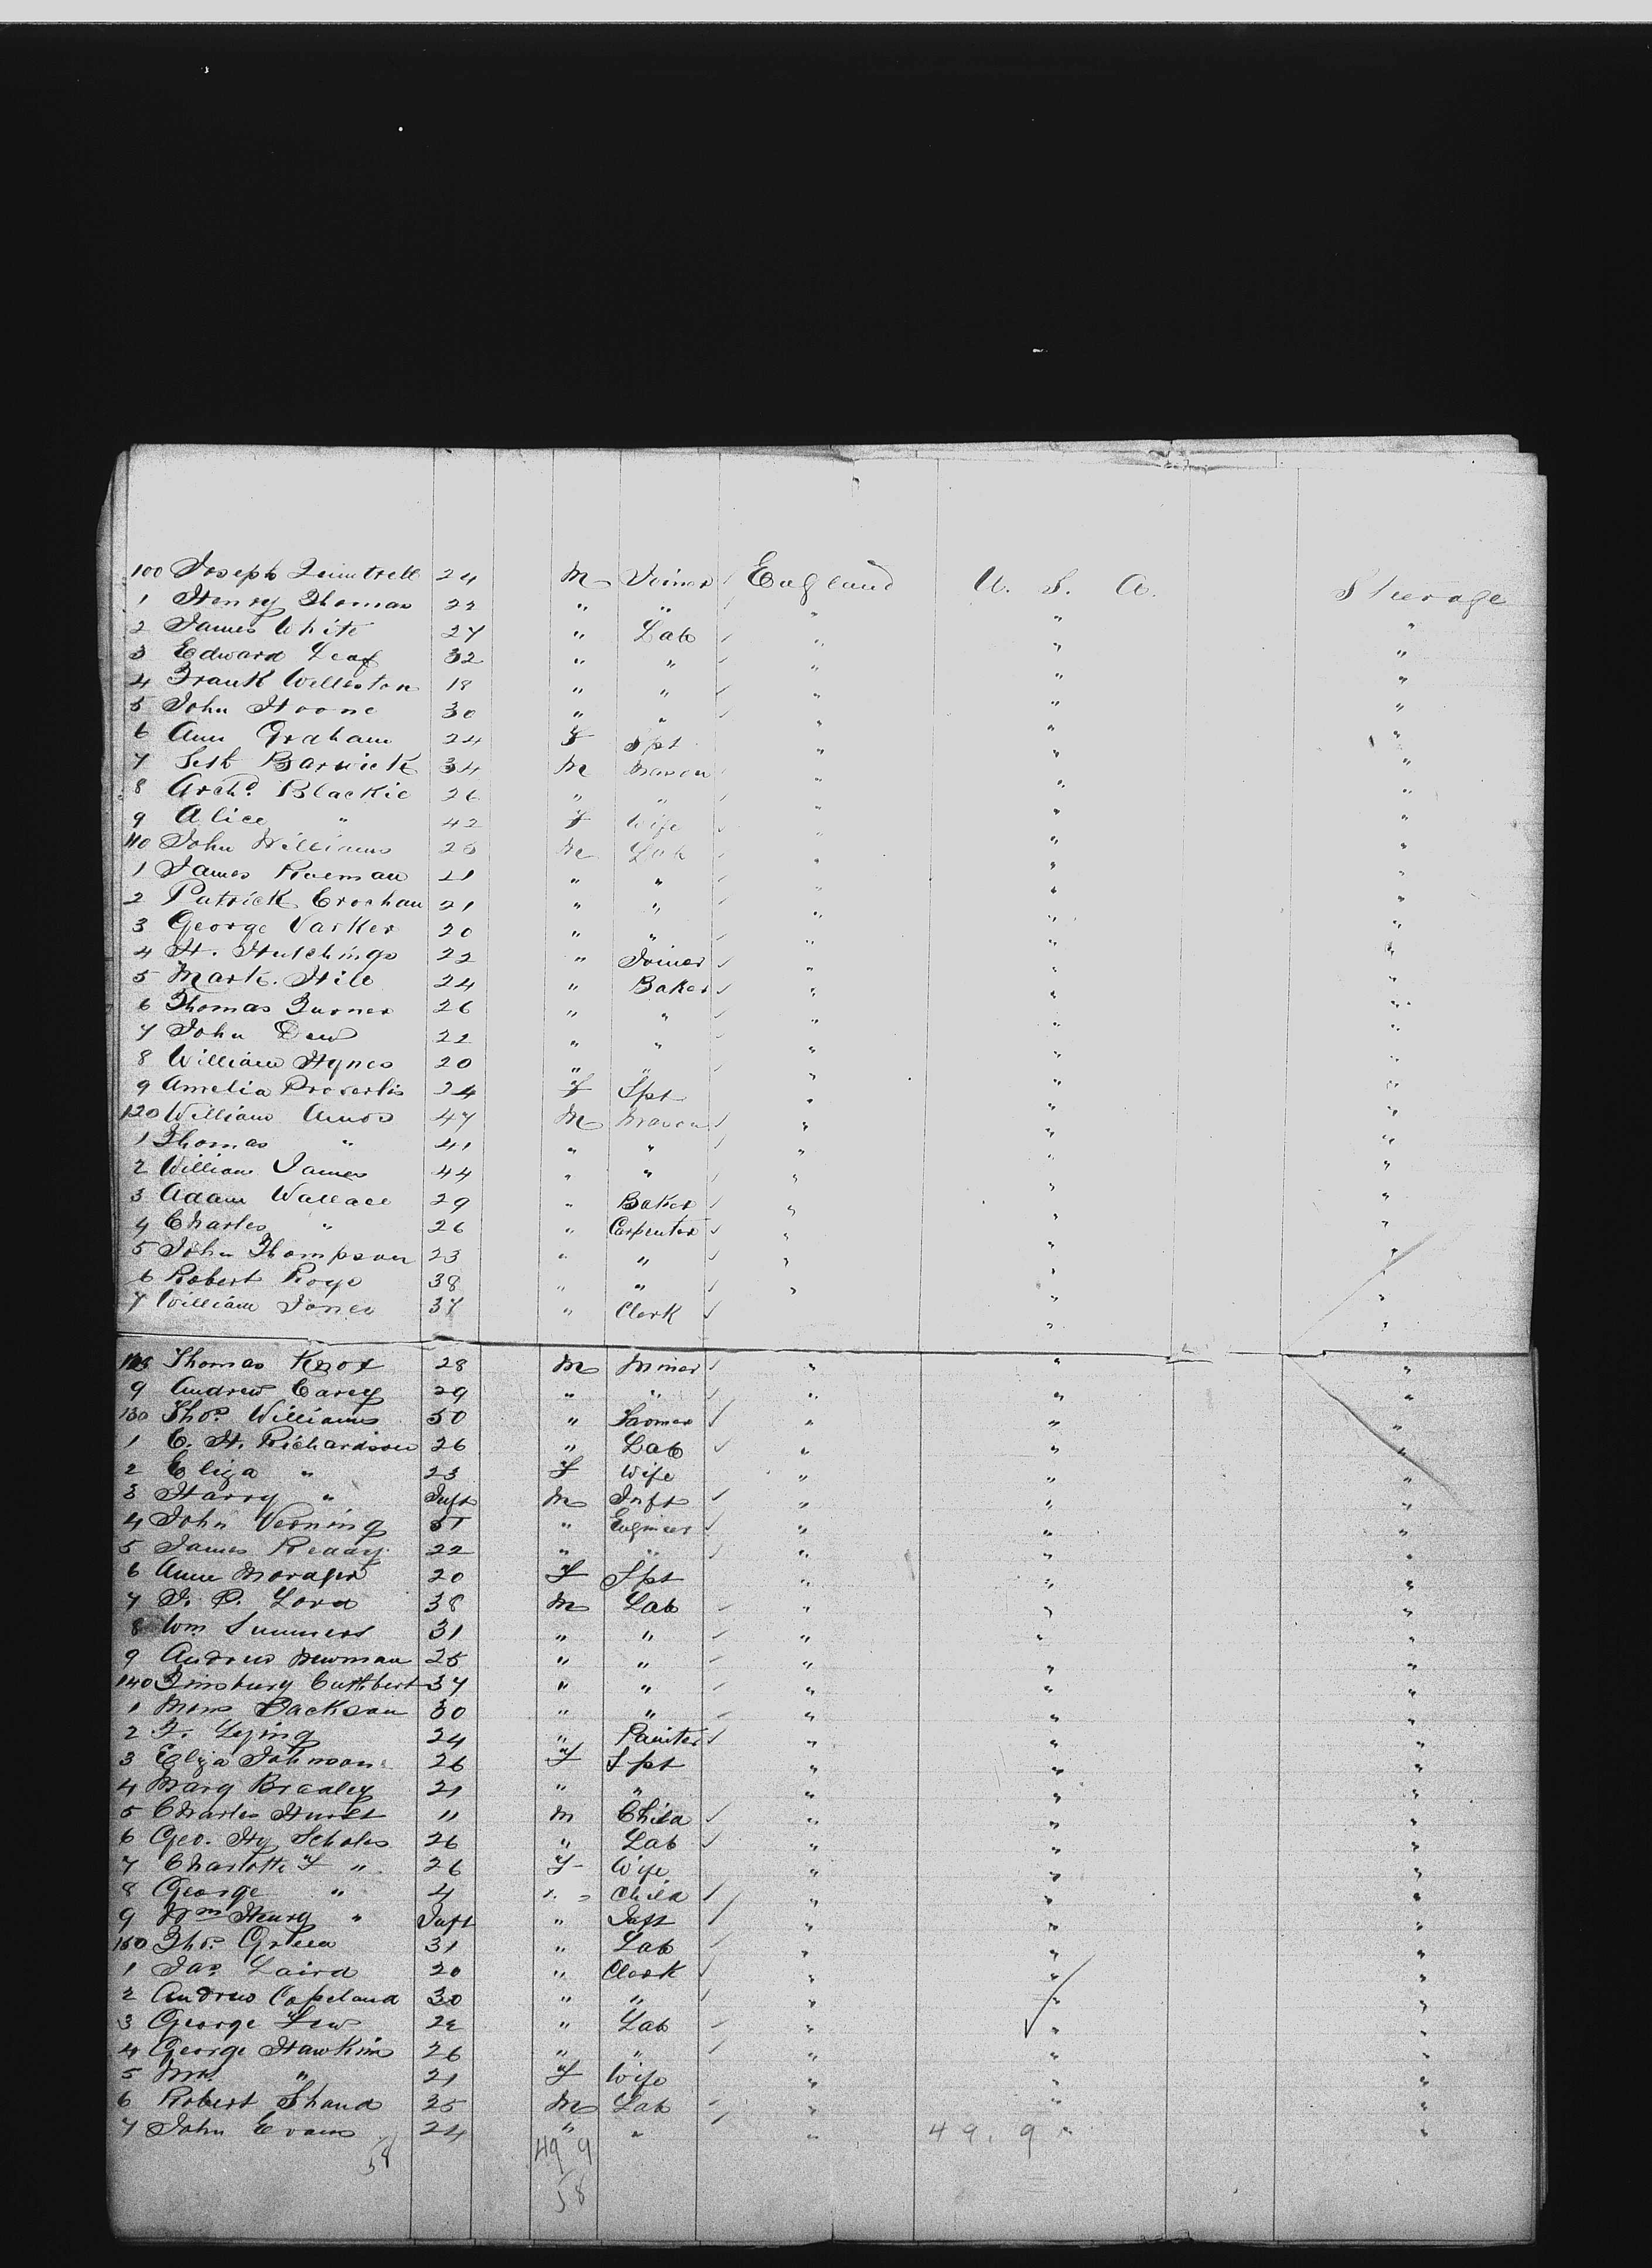 100 Joseph 24 M Joiner ✓ England U. S. A. Steerage
1 Henry Thomas 22 " " ✓ " " "
2 James White 27 " Lab ✓ " " "
3 Edward Leaf 32 " " ✓ " " "
4 Frank Williston 18 " " ✓ " " "
5 John Hoone 30 " " ✓ " " "
6 Ann Graham 24 F Spt " " "
7 Barwick 34 M Mason ✓ " " "
8 Archd Blackie 26 " " ✓ " " "
9 Alice " 42 F Wife " " "
110 John Williams 28 M Lab ✓ " " "
1 James 21 " " ✓ " " "
2 Patrick Crochan 21 " " ✓ " " "
3 George Varker 20 " " ✓ " " "
4 H. Hutchings 22 " Joiner ✓ " " "
5 Mark. Hill 24 " Baker ✓ " " "
6 Thomas Turner 26 " " ✓ " " "
7 John Dew 22 " " ✓ " " "
8 William Hynes 20 " " ✓ " " "
9 Amelia 24 F Spt " " "
120 William Amos 47 M Mason ✓ " " "
1 Thomas " 41 " " ✓ " " "
2 William James 44 " " ✓ " " "
3 Adam Wallace 29 " Baker ✓ " " "
4 Charles " 26 " Carpenter ✓ " " "
5 John Thompson 23 " " ✓ " " "
6 Robert Roye 38 " " ✓ " " "
7 William Jones 37 " Clerk ✓ " "
128 Thomas Knox 28 M Miner ✓ " " "
9 Andrew Carey 29 " " ✓ " " "
130 Thos Williams 50 " Farmer ✓ " " "
1 C. H. Richardson 26 " Lab ✓ " " "
2 Eliza " 23 F Wife " " "
3 Harry " Inft M Inft ✓ " " "
4 John Verning " Engineer ✓ " " "
5 James Reddy 22 " " ✓ " " "
6 Anne 20 F Spt " " "
7 Lord 38 M Lab ✓ " " "
8 Wm Summers 31 " " ✓ " " "
9 Andrew Newman 25 " " ✓ " " "
140 Cuthbert 37 " " ✓ " " "
1 Jackson 30 " " ✓ " " "
2 24 " Painter ✓ " " "
3 Eliza Johnson 26 F Spt " " "
4 Mary Bradley 21 " " " " "
5 Charles Hurst 11 M Child ✓ " " "
6 Geo. Hy Scholes 26 " Lab ✓ " " "
7 Charlotte F " 26 F Wife " " "
8 George " 4 " Child ✓ " " "
9 Wm Henry " Inft " Inft ✓ " " "
150 Thos Green 31 " Lab ✓ " " "
1 Jas Laird 20 " Clerk ✓ " " "
2 Andrew Copeland 30 " " ✓ " " "
3 George Lew 22 " Lab ✓ " " "
4 George Hawkins 26 " " ✓ " " "
5 Mrs " 21 F Wife " " "
6 Robert Shand 25 M Lab ✓ " " "
7 John Evans 24 " " ✓ " 49. 9 " "
58 49 9
58